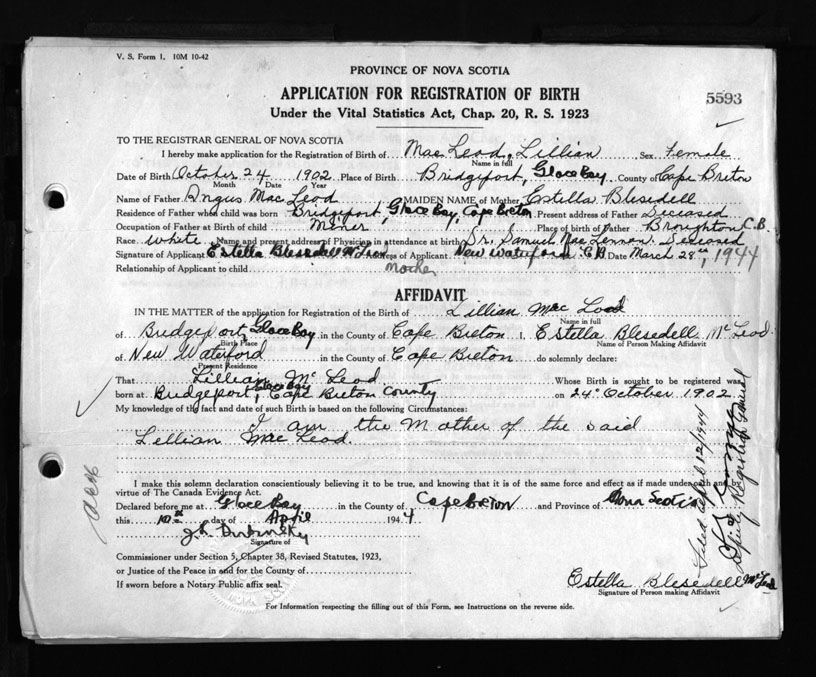 V. S. Form 1. 10M 10-42
PROVINCE OF NOVA SCOTIA
APPLICATION FOR REGISTRATION OF BIRTH
5593
Under the Vital Statistics Act, Chap. 20, R. S. 1923
TO THE REGISTRAR GENERAL OF NOVA SCOTIA
I hereby make application for the Registration of Birth of Mac Leod, Lillian Sex Female
Name in full
Date of Birth October 24 1902 Place of Birth Bridgeport, Glace Bay County of Cape Breton
Month Date Year
Name of Father Angus Mac Leod MAIDEN NAME of Mother Estella Blesedell
Residence of Father when child was born Bridgeport, Glace Bay, Cape Breton Present address of Father Deceased
Occupation of Father at Birth of child Miner Place of birth of Father Broughton C.B.
Race White Name and present address of Physician in attendance at birth Dr. Samuel Mac Lennon Deceased
Signature of Applicant Estella Blesedell McLeod Address of Applicant New Waterford C.B. Date March 28th, 1944
Relationship of Applicant to child mother
AFFIDAVIT
IN THE MATTER of the application for Registration of the Birth of Lillian Mac Leod
Name in full
of Bridgeport, Glace Bay in the County of Cape Breton I, Estella Blesedell McLeod
Birth Place Name of Person Making Affidavit
of New Waterford in the County of Cape Breton do solemnly declare:
Present Residence
That Lillian McLeod Whose Birth is sought to be registered was
born at Bridgeport, Glace Bay Cape Breton County on 24th October 1902
My knowledge of the fact and date of such Birth is based on the following Circumstances:
I am the Mother of the said
Lillian Mac Leod.
I make this solemn declaration conscientiously believing it to be true, and knowing that it is of the same force and effect as if made under oath and
virtue of The Canada Evidence Act.
Declared before me at Glace Bay in the County of Cape Breton and Province of Nova Scotia
this 10th day of April 1944
Signature of
Commissioner under Section 5, Chapter 38, Revised Statutes, 1923,
or Justice of the Peace in and for the County of
If sworn before a Notary Public affix seal.
Estella Blesedell McLeod
Signature of Person making Affidavit
For Information respecting the filling out of this Form, see Instructions on the reverse side.
Filed April 12/1944
Deputy Registrar General
NOVA SCOTIA